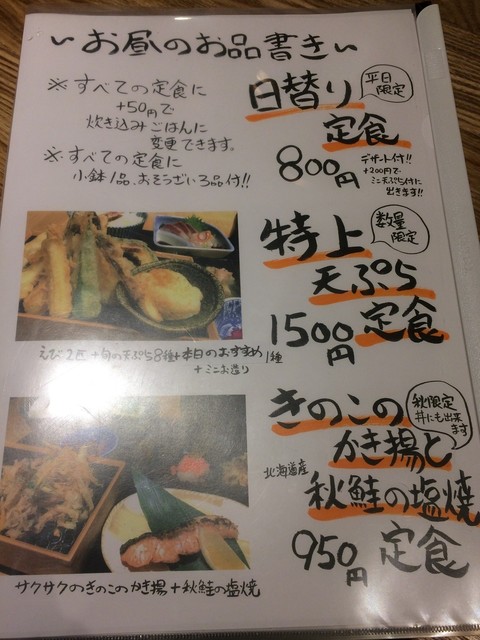 〜お昼のお品書き〜
※すべての定食に
+50円で
炊き込みごはんに
変更できます。
※すべての定食に
小鉢1品、おそうざい3品付!!
日替り
平日
限定
定食
800円
デザート付!!
+200円で
ミニ天ぷら付に
出きます!!
特上
数量
限定
天ぷら
定食
1500円
えび2匹+旬の天ぷら8種+本日のおすすめ1種
+ミニお造り
きのこの
秋限定
丼にも出来
ます
かき揚と
北海道産
秋鮭の塩焼
定食
950円
サクサクのきのこのかき揚+秋鮭の塩焼